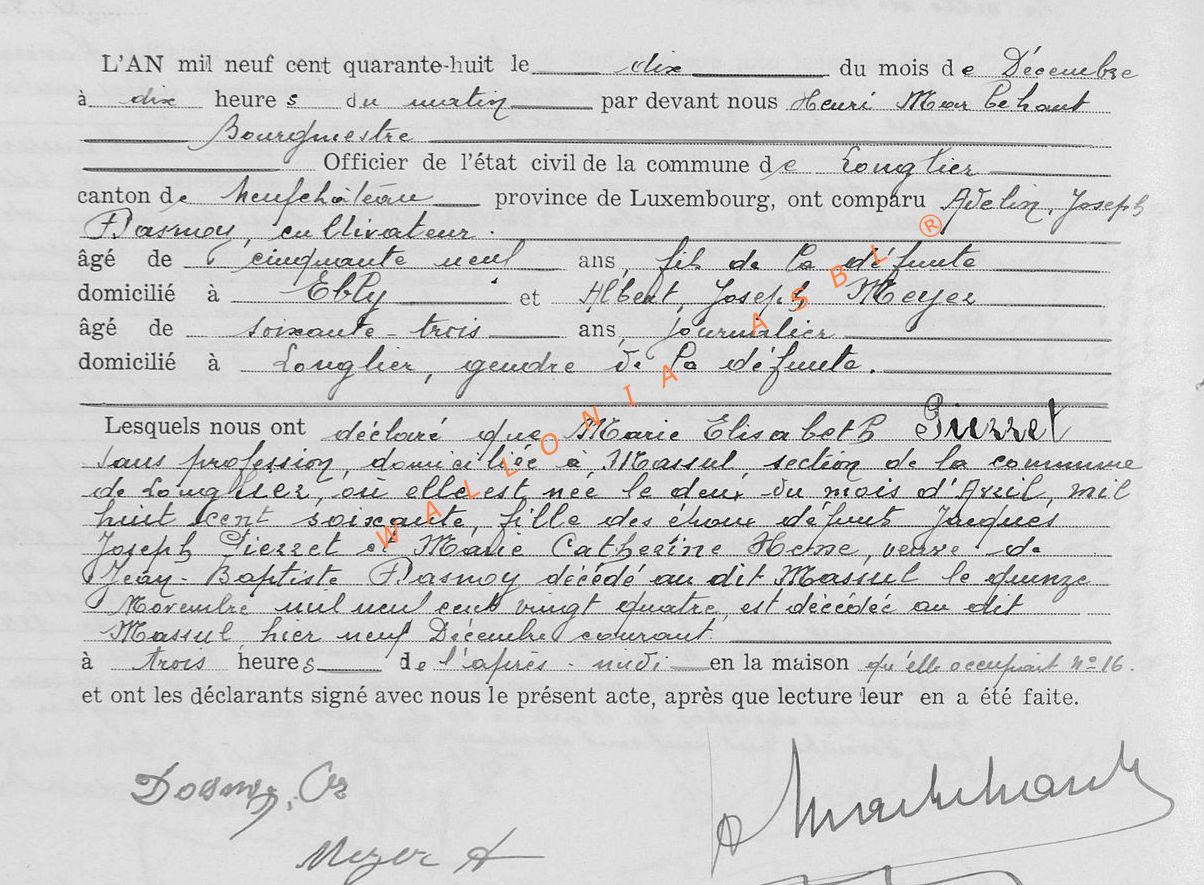 L'AN mil neuf cent quarante-huit le dix du mois de Décembre
à dix heures du matin par devant nous Henri Marbehant
Bourgmestre
Officier de l'état civil de la commune de Longlier
canton de Neufchâteau province de Luxembourg, ont comparu Adelin, Joseph
Dasnoy, cultivateur.
âgé de cinquante neuf ans, fils de la défunte
domicilié à Ebly et Albert, Joseph Meyer
âgé de soixante-trois ans, journalier
domicilié à Longlier, gendre de la défunte.
Lesquels nous ont déclaré que Marie Elisabeth Pierret
sans profession, domiciliée à Massul, section de la commune
de Longlier, où elle est née le deux du mois d'Avril, mil
huit cent soixante, fille des époux défunts Jacques
Joseph Pierret et Marie Catherine Hesse, veuve de
Jean-Baptiste Dasnoy décédé au dit Massul le quinze
Novembre mil neuf cent vingt quatre, est décédée au dit
Massul hier neuf Décembre courant
à trois heures de l'après-midi en la maison qu'elle occupait n° 16.
et ont les déclarants signé avec nous le présent acte, après que lecture leur en a été faite.
Dasnoy,
Meyer A
WALLONIA ASBL ®